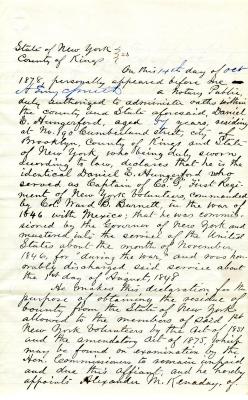 State of New York } ss
County of Kings
On this 14th day of Oct
1878, personally appeared before me
a Notary Public,
duly authorized to administer oaths within
the County and State aforesaid, Daniel
E. Hungerford, aged years, residing
at No. 190 Cumberland street, city of
Brooklyn, County of Kings and State
of New York who being duly sworn
according to law, declares that he is the
identical Daniel E. Hungerford who
served as Captain of Co. First Regi-
ment of New York Volunteers commanded
by Col. Ward B. Burnett, in the war of
1846 with Mexico; that he was commis-
sioned by the Governor of New York and
mustered into the service of the United
States about the month of November,
1846, for "during the war" and was hon-
orably discharged said service about
the 1st day of August 1848.
He makes this declaration for the
purpose of obtaining the residue of
bounty from the State of New York,
allowed to the members of said 1st
New York Volunteers by the Act of 1851
and the amendatory Act of 1875, which
may be found on examination by the
Hon. Commissioners to remain unpaid
and due this affiant, and he hereby
appoints Alexander M. Kenaday, of